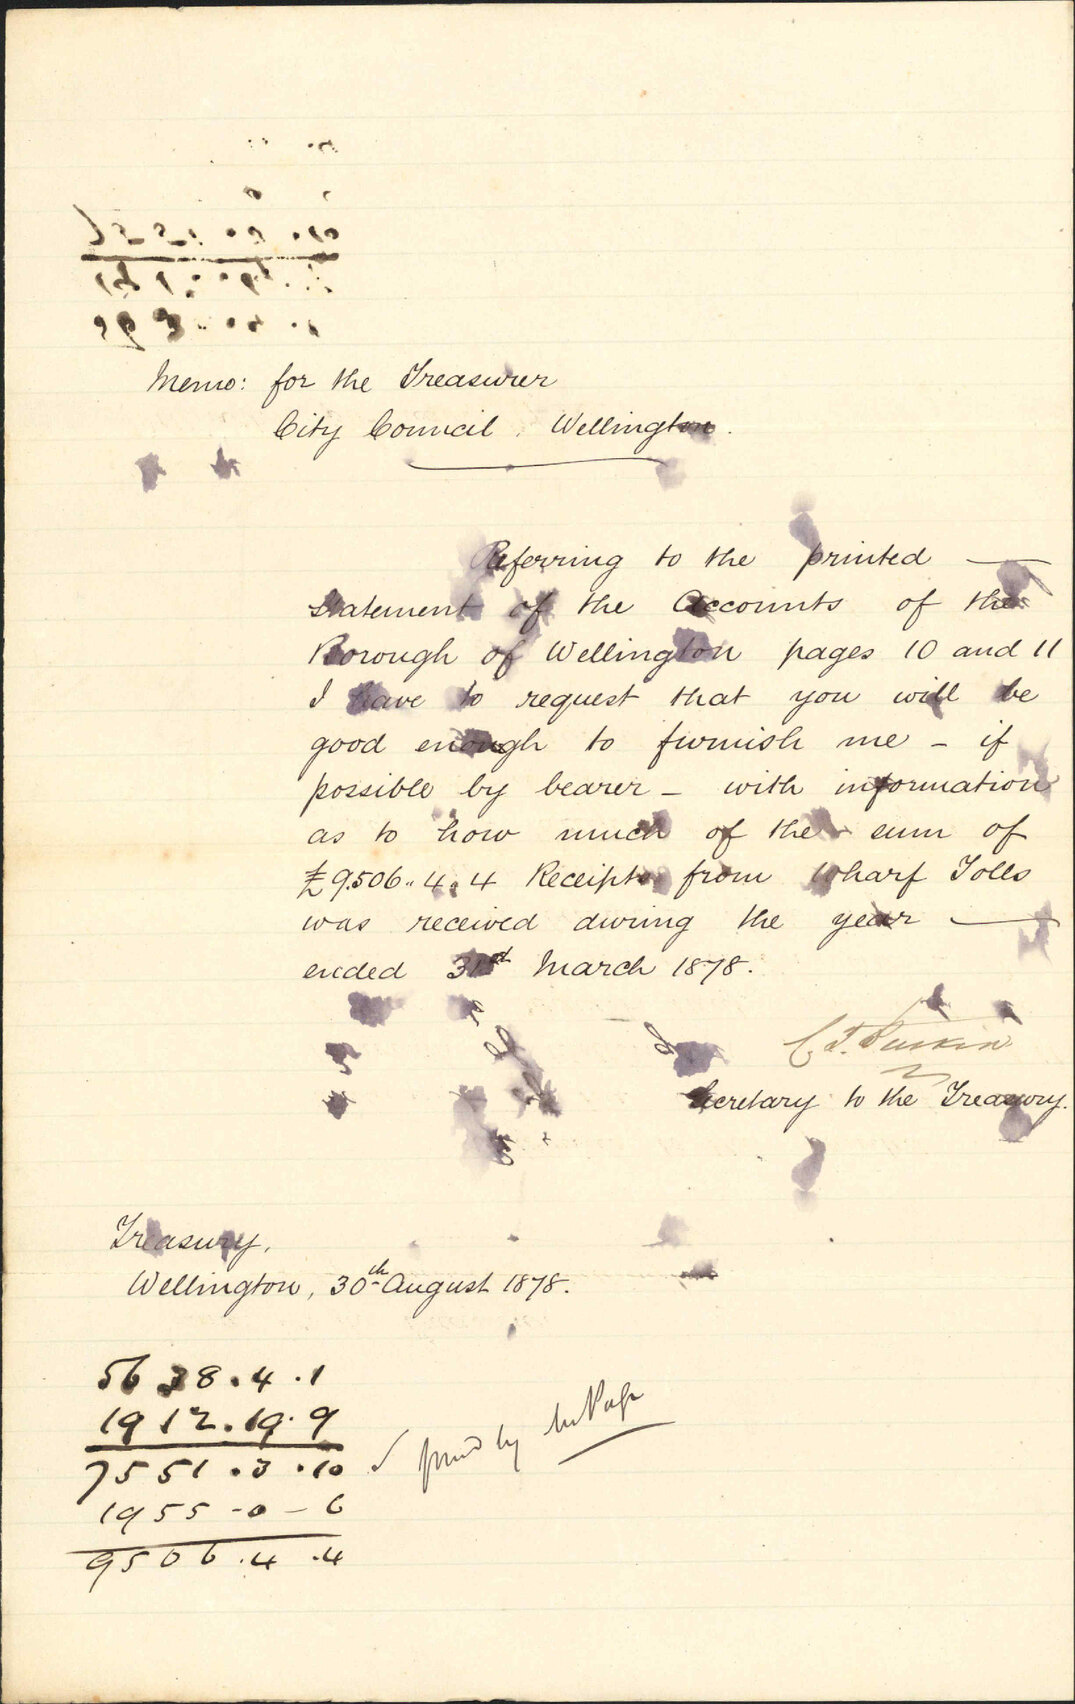 Memo: for the Treasurer
City Council. Wellington.
Referring to the printed —
statement of the Accounts of the
Borough of Wellington pages 10 and 11
I have to request that you will be
good enough to furnish me – if
possible by bearer – with information
as to how much of the sum of
£9506.. 4. 4 Receipts from Wharf Tolls
was received during the year —
ended 31st March 1878.
Secretary to the Treasury.
Treasury,
Wellington, 30th August 1878.
5638.4.1
1912.19.9
7551.3.10 ✓
1955-0-6
9506.4.4